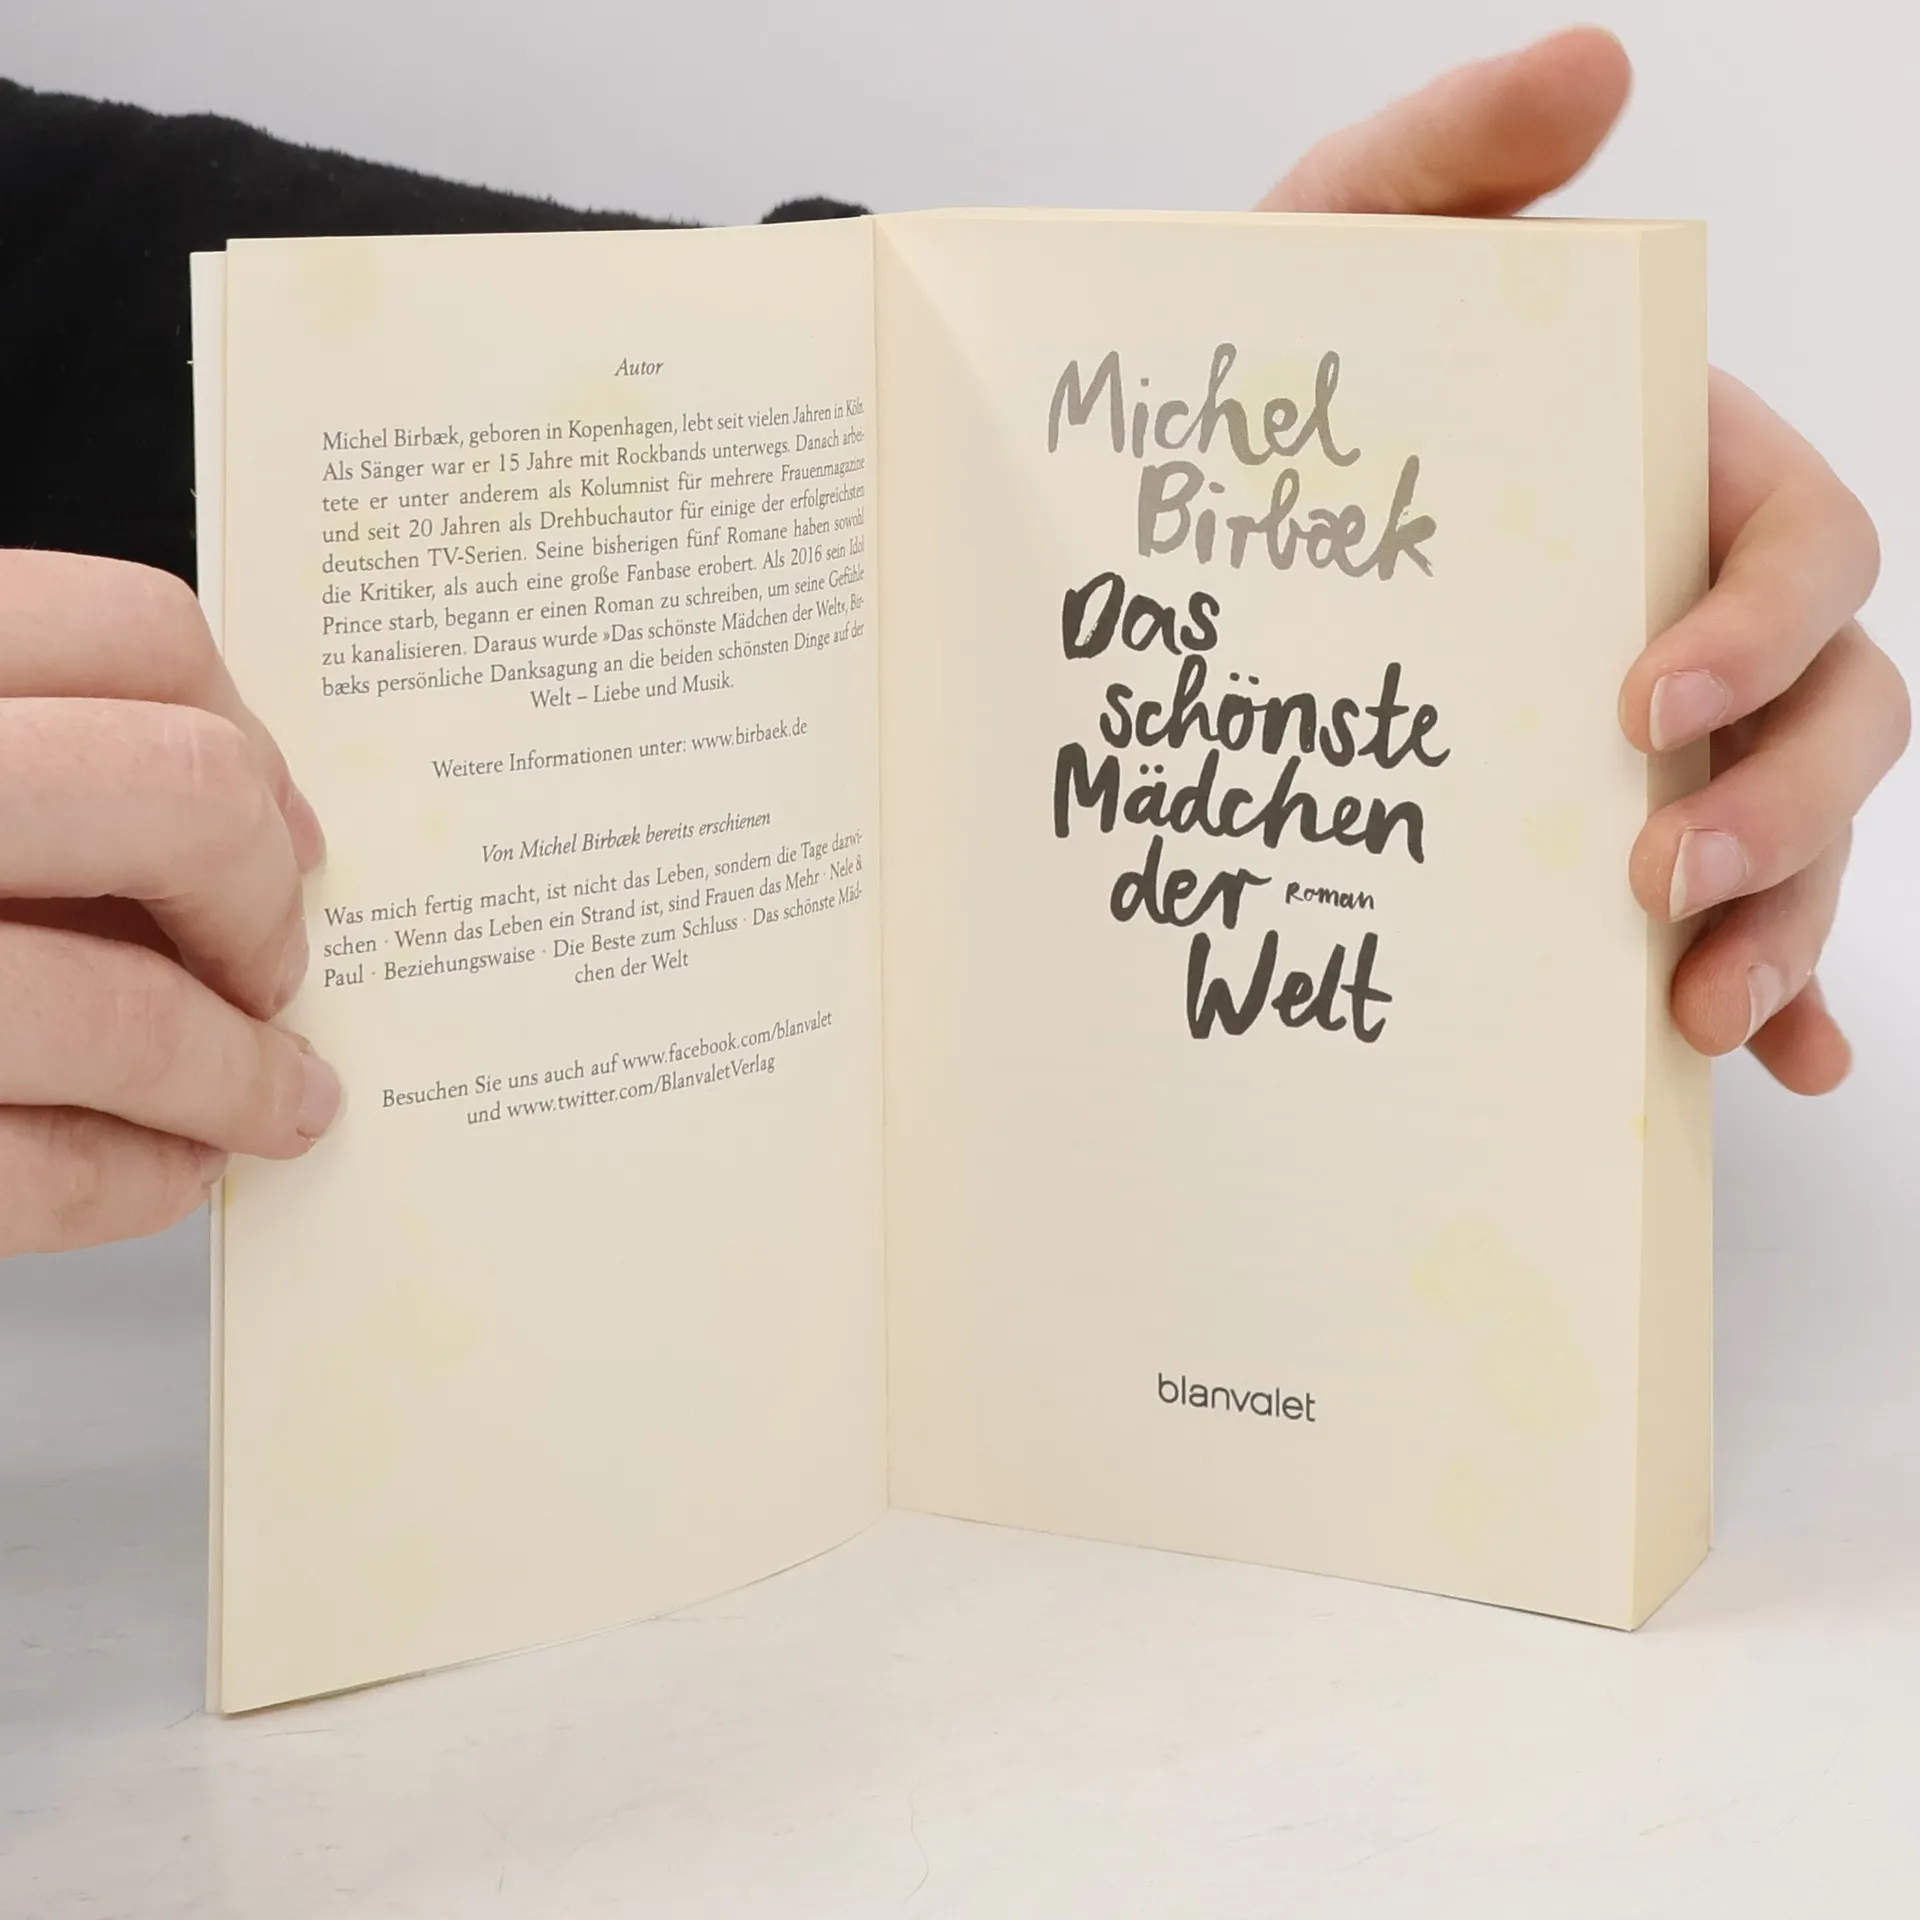 Autor
Michel Birbæk, geboren in Kopenhagen, lebt seit vielen Jahren in Köln.
Als Sänger war er 15 Jahre mit Rockbands unterwegs. Danach arbei-
tete er unter anderem als Kolumnist für mehrere Frauenmagazine
und seit 20 Jahren als Drehbuchautor für einige der erfolgreichsten
deutschen TV-Serien. Seine bisherigen fünf Romane haben sowohl
die Kritiker, als auch eine große Fanbase erobert. Als 2016 sein Idol
Prince starb, begann er einen Roman zu schreiben, um seine Gefühle
zu kanalisieren. Daraus wurde »Das schönste Mädchen der Welt«, Bir-
bæks persönliche Danksagung an die beiden schönsten Dinge auf der
Welt – Liebe und Musik.
Weitere Informationen unter: www.birbaek.de
Von Michel Birbæk bereits erschienen
Was mich fertig macht, ist nicht das Leben, sondern die Tage dazwi-
schen · Wenn das Leben ein Strand ist, sind Frauen das Mehr · Nele &
Paul · Beziehungswaise · Die Beste zum Schluss · Das schönste Mäd-
chen der Welt
Besuchen Sie uns auch auf www.facebook.com/blanvalet
und www.twitter.com/BlanvaletVerlag
Michel
Birbæk
Das
schönste
Mädchen
der Roman
Welt
blanvalet